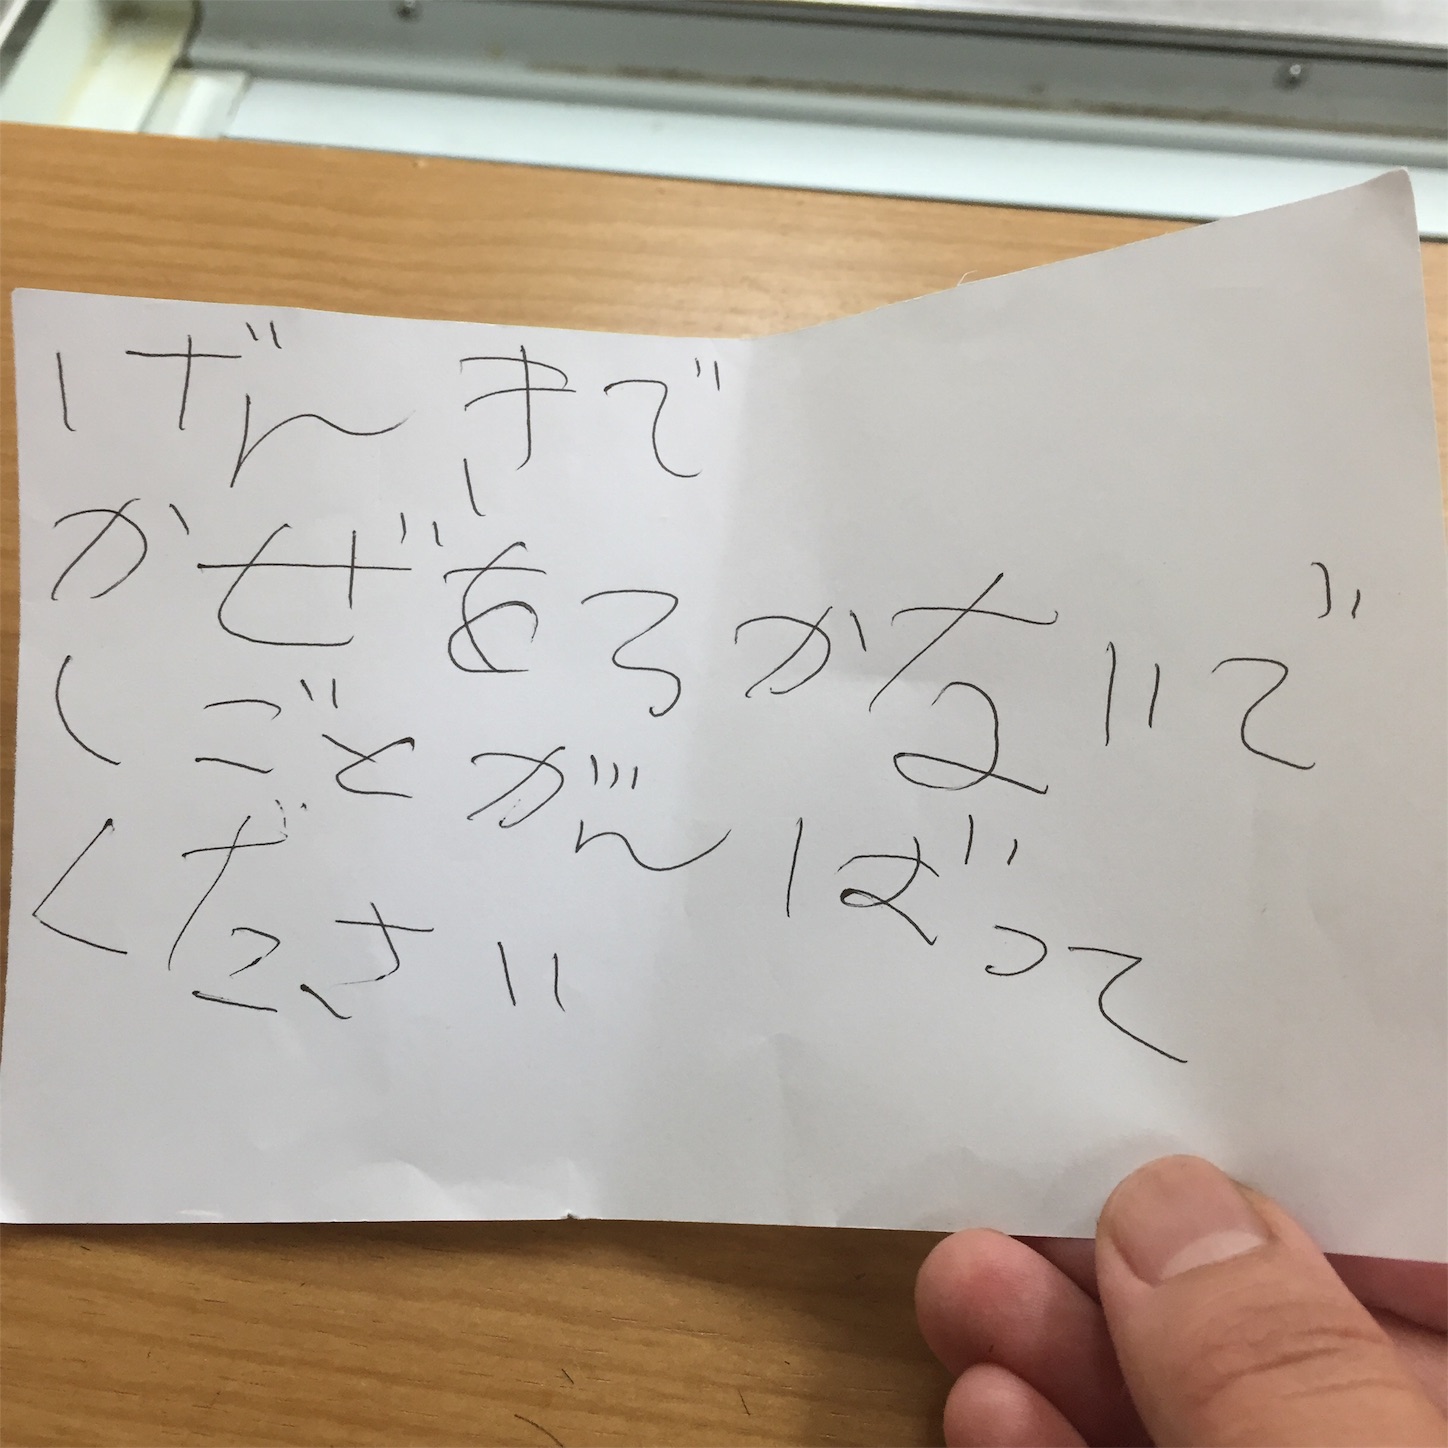 げんきで
かぜをろかないで
しごとがんばって
ください